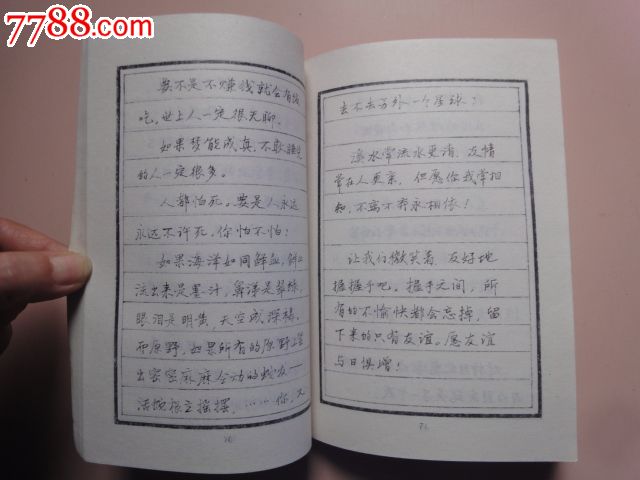 7788.com
要不是不赚钱就会有饭
吃,世上人一定很无聊。
如果梦能成真,不敢睡觉
的人一定很多。
人都怕死。要是人永远
永远不许死,你怕不怕?
如果海洋如同鲜血,
流出来是墨汁,鼻涕是翠绿,
眼泪是明黄,天空成深褐,
而原野,如果所有的原野上
出密密麻麻会动的——
摇摆,……你,又
去不去另外一个星球?
溪水常流水更清,友情
常在人更亲,但愿你我常相
知,不离不弃永相依!
让我们微笑着,友好地
握握手吧。握手之间,所
有的不愉快都会忘掉,留
下来的只有友谊,愿友谊
与日俱增!